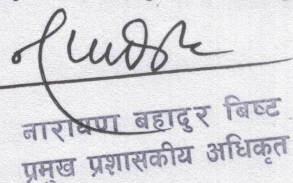 नारायण बहादुर बिष्ट
प्रमुख प्रशासकीय अधिकृत